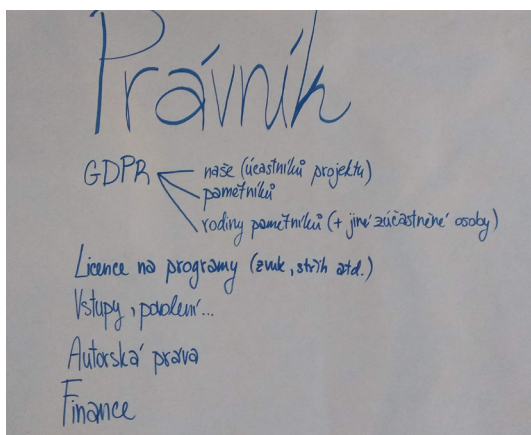 Právník
GDPR
naše (účastníků projektu)
pamětníků
rodiny pamětníků (+ jiné zúčastněné osoby)
Licence na programy (zvuk, střih atd.)
Vstupy, povolení...
Autorská práva
Finance